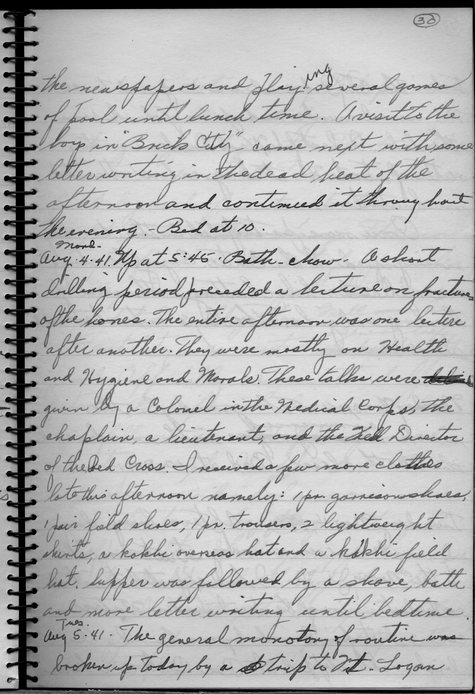 30
the newspapers and playing several games
of pool until lunch time. A visit to the
boys in "Brick City" came next with some
letter writing in the dead heat of the
afternoon and continued it throughout
the evening - Bed at 10.
Mon.
Aug. 4. 41. Up at 5:45. Bath - chow - A short
drilling period preceded a lecture on fractures
of the bones. The entire afternoon was one lecture
after another. They were mostly on Health
and Hygiene and Morals. These talks were
given by a Colonel in the Medical Corps, the
chaplain, a lieutenant, and the Field Director
of the Red Cross. I received a few more clothes
late this afternoon namely: 1 pr. garrison shoes,
1 pair field shoes, 1 pr. trousers, 2 lightweight
shirts, a kakhi overseas hat and a kakhi field
hat. Supper was followed by a shave, bath
and more letter writing until bedtime.
Tues.
Aug 5. 41. The general monotony of routine was
broken up today by a trip to Ft. Logan